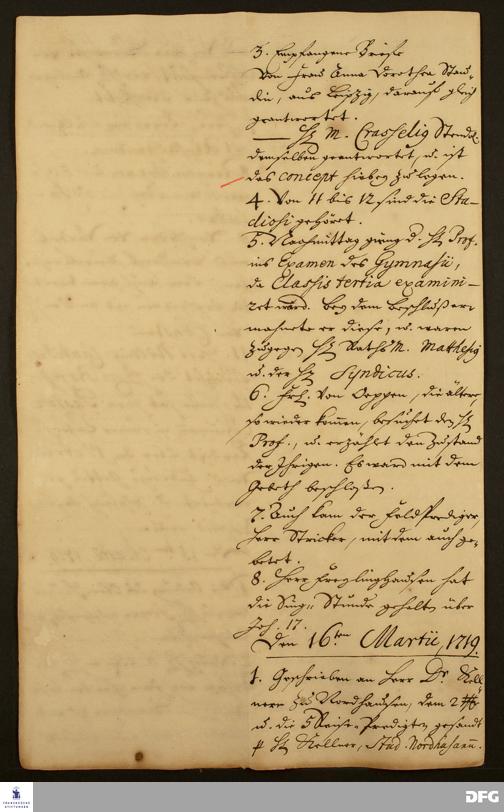 3. Empfangene Briefe
Von Frau Anna Dorothea Stau-
din, aus Leipzig, darauf gleich
geantwortet.
— Hz M. Crasselig Stendel.
demselben geantwortet, u. ist
das concept hiebey zu legen.
4. Von 11 bis 12 sind die Stu-
diosi gehöret.
5. Nachmittag gieng d. Hz Prof.
ins Examen des Gymnasii,
da Classis tertia examini-
ret ward. bey dem Beschluß er-
mahnete er diese, u. waren
zugegen Hz Raths M. Matthesig
u. der Hz Syndicus.
6. Frl. von Oeppen, die ältere,
so wieder kommen, besuchet den Hz
Prof., u. erzählet den Zustand
der Ihrigen. Es ward mit dem
Gebeth beschloßen.
7. Auch kam der Feldprediger,
Herr Stricker, mit dem auch ge-
betet.
8. Herr Freylinghausen hat
die Sing-Stunde gehalten über
Joh. 17.
Den 16ten Martii, 1719.
1. Geschrieben an Herr Dr. Kell
nern zu Nordhausen, dem 2
u. die 5 Reise-Predigten gesandt
p Hz Kellner, Stud. Nordhusanu.
FRANCKESCHE STIFTUNGEN
DFG